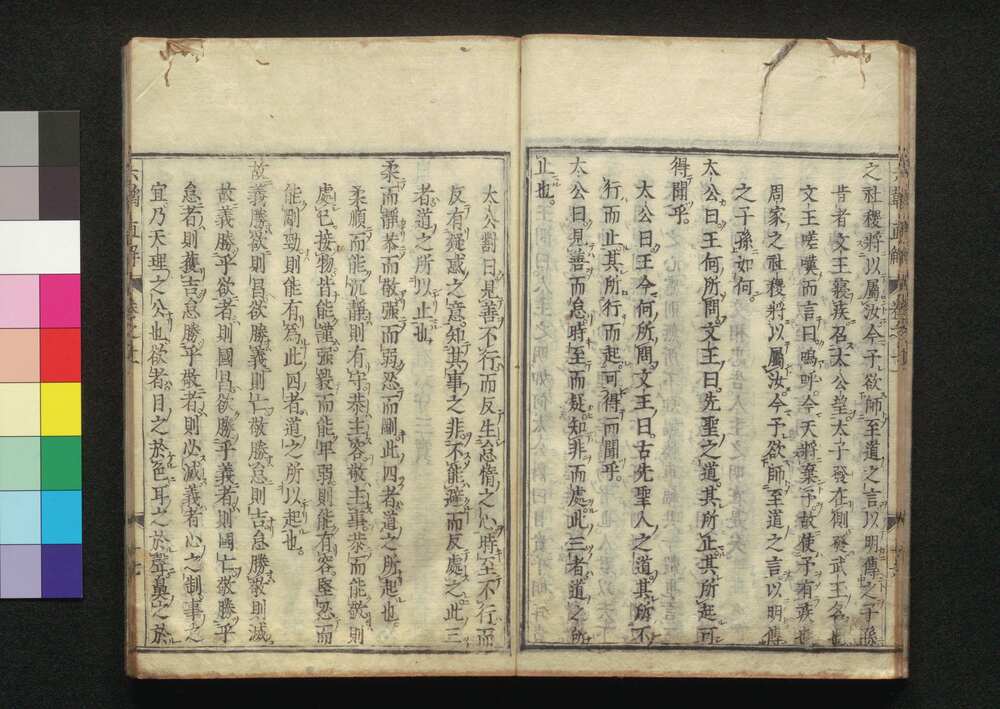 之社稷將以屬汝今予欲師至道之言以明傳之子孫
昔者文王寢疾召太公望太子發在側發武王名也
文王嗟嘆而言曰嗚呼今天將棄予故使予有疾也
周家之社稷將以屬汝今予欲師至道之言以明傳
之子孫如何
太公曰王何所問文王曰先聖之道其所止其所起可
得聞乎
太公曰王今何所問文王曰古先聖人之道其所不
行而止其所行而起可得而聞乎
太公曰見善而怠時至而疑知非而處此三者道之所
止也
太公對曰見善不行而反生怠惰之心時至不行而
反有疑惑之意知其事之非不能避而反處之此三
者道之所以止也
柔而靜恭而敬強而弱忍而剛此四者道之所起也
柔順而能沉靜則有守恭主容敬主事恭而能敬則
處已接物皆能謹強毅而能卑弱則能有容堅忍而
能剛勁則能有為此四者道之所以起也
故義勝欲則昌欲勝義則亡敬勝怠則吉怠勝敬則滅
故義勝乎欲者則國昌欲勝乎義者則國亡敬勝乎
怠者則獲吉怠勝乎敬者則必滅義者心之制事之
宜乃天理之公也欲者目之於色耳之於聲鼻之於
六韜直解
卷之
十七